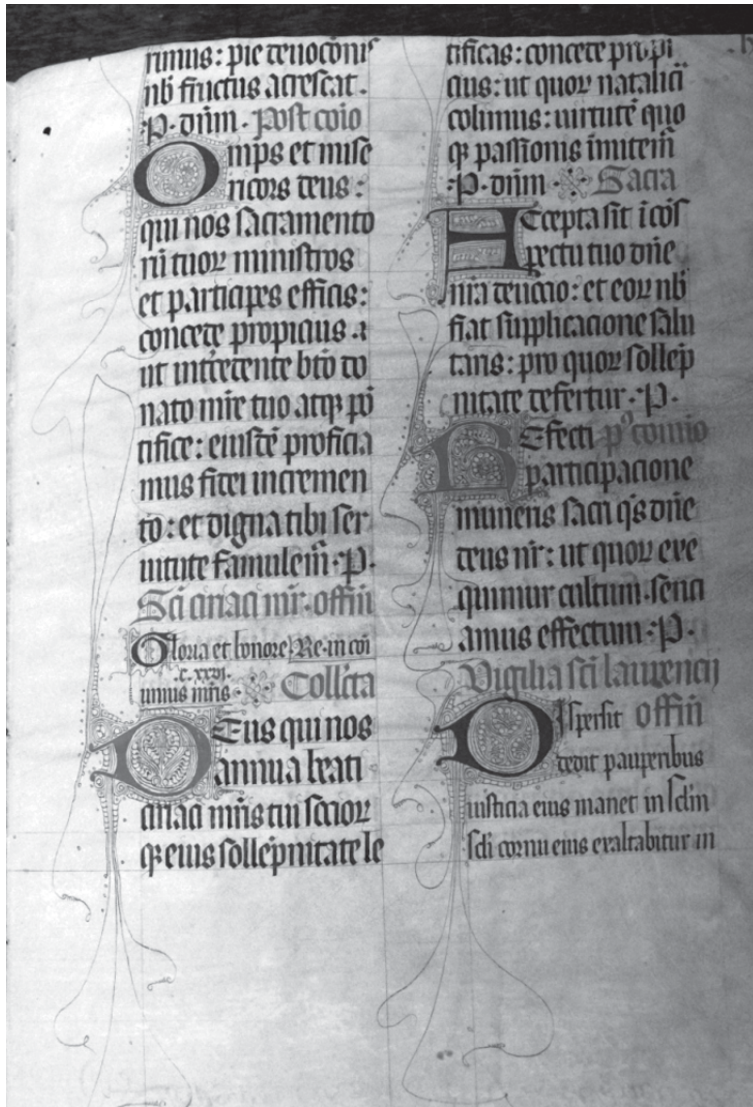 rimus: pie deuocōnis
nb̄ fructus acrescat.
P. dn̄m. Post cōio
Omps et mise
ricors deus:
qui nos sacramento
rū tuor ministros
et participes efficis:
concede propicius a
ut intercedente bt̄o do
nato mr̄e tuo atqꝫ pō
tifice: eiusdē proficia
mus fidei incremen
to: et digna tibi ser
uitute famulem̄. P.
Sc̄i ciriaci mr̄. offm̄
Gloria et honore. Re. in cōi
c. xxvi.
unius mr̄is. Coll̄cta
Deus qui nos
annua beati
ciriaci mr̄is tui sccior
qꝫ eius sollēpnitate le
tificas: concede propi
cius: ut quor natalicī
colimus: uirtutē quo
qꝫ passionis imitem̄
P. dn̄m. Sacra
Accepta sit ī cōs
pectu tuo dn̄e
nr̄a deuocio: et eor nb̄
fiat supplicacione salu
taris: pro quor sollēp
nitate defertur. P.
Refecti pꝰ comīo
participacione
muneris sacri q̄s dn̄e
deus nr̄: ut quor exe
quimur cultum. senci
amus effectum. P.
Vigilia sc̄i laurencij
Dispersit offm̄
dedit pauperibus
iusticia eius manet in sclm̄
scl̄i cornu eius exaltabitur in